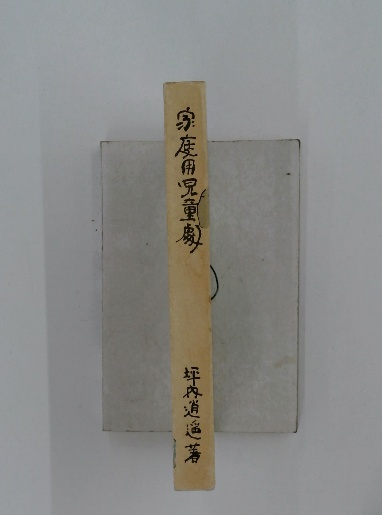 家庭用児童劇
坪内逍遥著